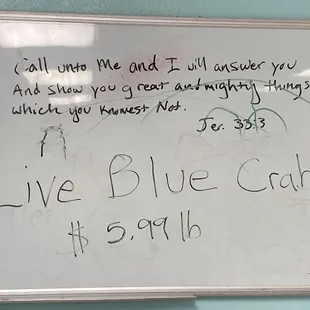 Call unto Me and I will answer you
And show you great and mighty things
which you Knowest Not.
Jer. 33:3
Live Blue Crab
$ 5.99 lb